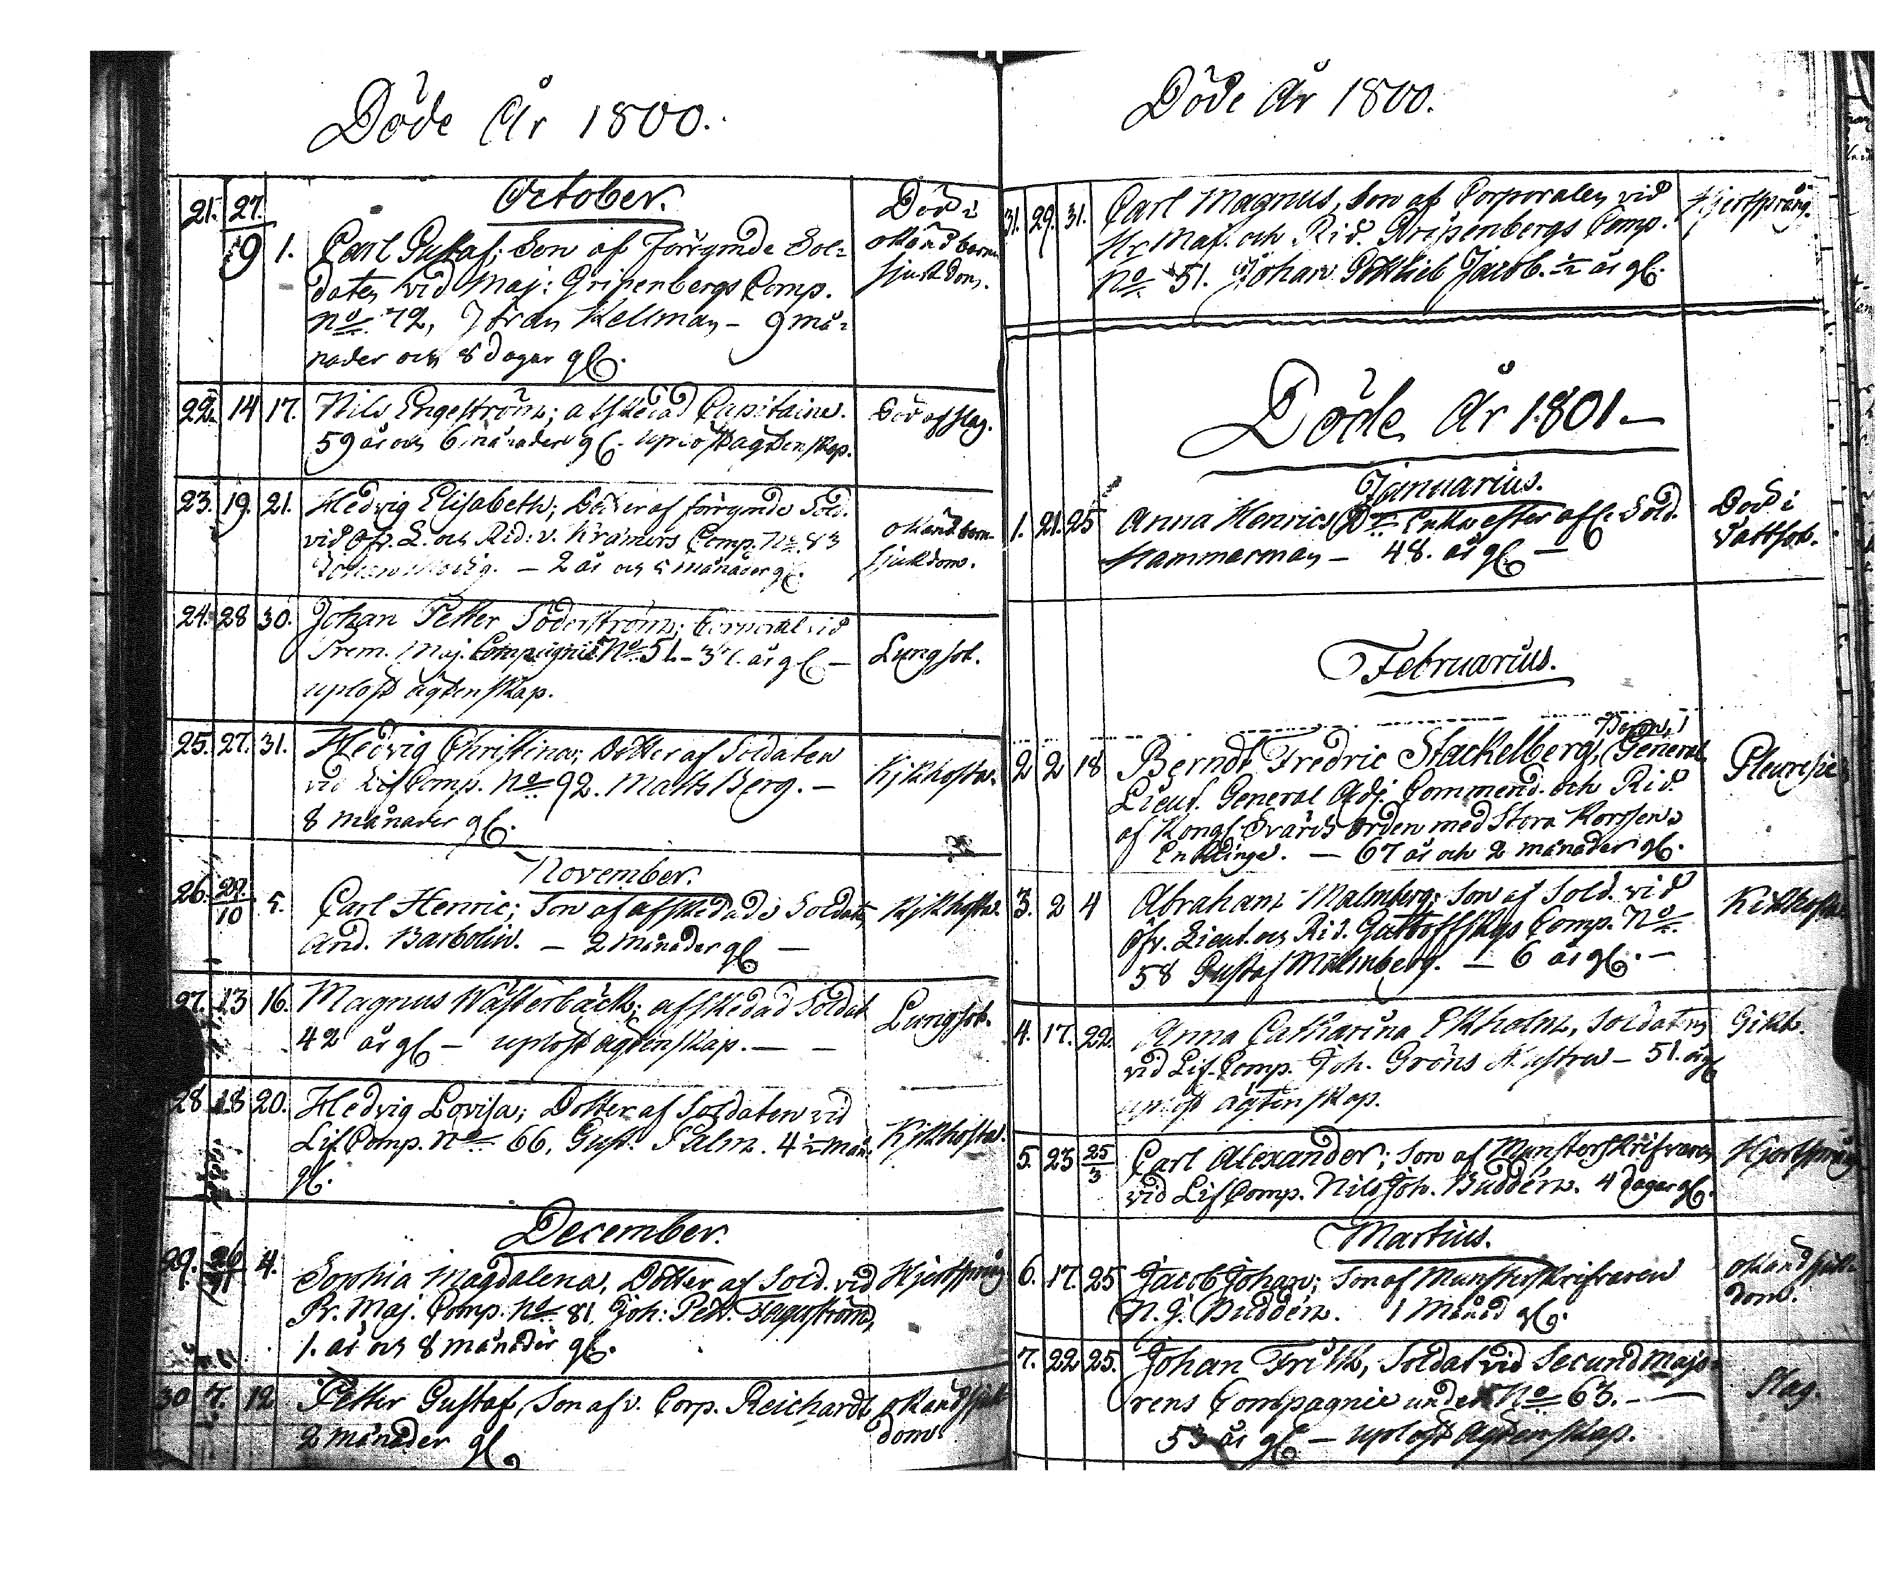 Döde År 1800.
October.
21. 27/9 1. Carl Gustaf; Son af Förrymde Sol=
daten vid Maj: Gripenbergs Comp.
No 72, Jöran Hellman – 9 må=
nader och 8 dagar gl.
Död i
okänd barn
sjukdom.
22. 14 17. Nils Engeström; afskedad Capitaine.
59 år och 6 månader gl. uplöst ägtenskap.
Död af slag.
23. 19. 21. Hedvig Elisabeth; Dotter af förrymde Sold.
vid Öfv. L. och Rid. v. Kræmers Comp. No 83
– 2 år och 5 månader gl.
okänd barn-
sjukdom.
24. 28 30. Johan Petter Söderström; Corporal vid
Prem. Maj. Compagnie No 51. – år gl –
uplöst ägtenskap.
Lungsot.
25. 27. 31. Hedvig Christina; Dotter af Soldaten
vid Lif Comp. No 92. Matts Berg. –
8 månader gl.
Kikhosta.
November.
26. 29/10 5. Carl Henric; Son af afskedade Soldat
And. Barbolin. – 2 månader gl –
Kikhosta.
27. 13 16. Magnus Wästerbäck; afskedad Soldat
42 år gl – uplöst ägtenskap. – –
Lungsot.
28 18 20. Hedvig Lovisa; Dotter af Soldaten vid
Lif Comp. No 66, Gust. Palm. 4 1/2 mån.
gl.
Kikhosta.
December.
29. 26/11 4. Sophia Magdalena, Dotter af Sold. vid
Pr. Maj. Comp. No 81. Joh: Pet. Fagerström,
1. år och 8 månader gl.
Hjertsprång
30 7. 12 Petter Gustaf, Son af v. Corp. Reichardt
2 månader gl
okänd sjuk
dom
Döde År 1800.
31. 29. 31. Carl Magnus, Son af Corporalen vid
Hr Maj. och Rid. Gripenbergs Comp.
No 51. Johan Gottlieb Jacob. 1/2 år gl.
Hjertsprång.
Döde År 1801 –
Januarius.
1. 21. 25 Anna Henrics Dr Enka efter afl. Sold.
Hammerman – 48. år gl –
Död i
Vattsot.
Februarius.
Baron,
2 2 18 Berndt Fredric Stackelberg, General
Lieut. General Adj. Commend. och Rid.
af Kongl. Svärds Orden med Stora Korssen
Enklinge. – 67 år och 2 månader gl.
Pleuresie
3. 2 4 Abraham Malmberg; Son af Sold. vid
Öfv. Lieut. och Rid. Comp. No
58 Gustaf Malmberg. – 6 år gl. –
Kikhosta.
4. 17. 22. Anna Catharina Ekholm, Soldaten
vid Lif. Comp. Joh. Gröns Hustru – 51. år gl
uplöst ägtenskap.
Gikt.
5. 23 25/3 Carl Alexander; Son af Mönsterskrifvaren
vid Lif Comp. Nils Joh. Buddén. 4 dagar gl.
Hjertsprång
Martius.
6. 17. 25 Jacob Johan; Son af Mönsterskrifvaren
N. J. Buddén. 1 Månad gl.
okänd sjuk-
dom.
7. 22 25. Johan Frisk, Soldat vid Secund Majo-
rens Compagnie under No 63. –
53 år gl – uplöst ägtenskap.
Slag.